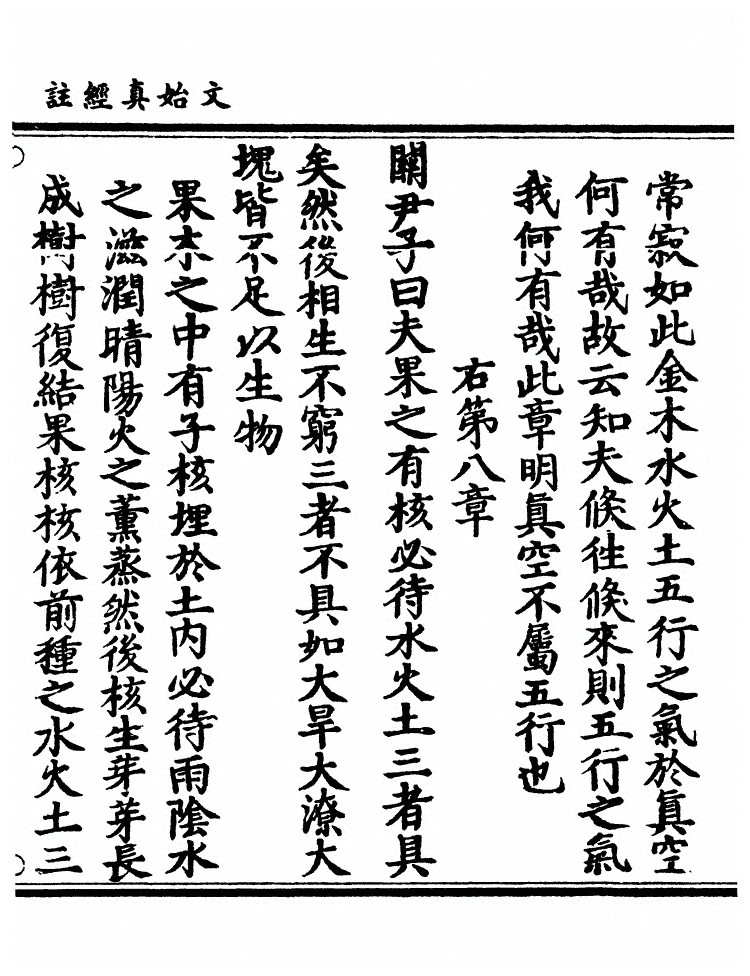 文始真經註
常寂如此金木水火土五行之氣於眞空
何有哉故云知夫倏徃倏來則五行之氣
我何有哉此章明眞空不屬五行也
右第八章
關尹子曰夫果之有核必待水火土三者具
矣然後相生不窮三者不具如大旱大潦大
塊皆不足以生物
果木之中有子核埋於土内必待雨陰水
之滋潤晴陽火之薰蒸然後核生芽芽長
成樹樹復結果核核依前種之水火土三